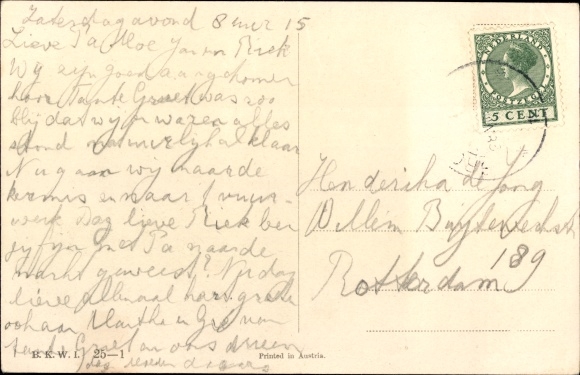 Zaterdagavond 8 uur 15
Lieve Pa Moe Jan en Riek
Wij zijn goed aangekomen
hoor Tante Greet was zoo
blij dat wij er waren alles
stond natuurlijk al klaar
Nu gaan wij naar de
kermis en naar 't vuur-
werk Dag lieve Riek ben
jij fijn met Pa naar de
markt geweest? Nu dag
lieve allemaal hart. groete
ook aan Martha en van
tante Greet en ons
NEDERLAND
POSTZEGEL
5 CENT
Hendericka de Jong
Willem Buytewechstr
189
Rotterdam
B. K. W. I. 25-1
Printed in Austria.